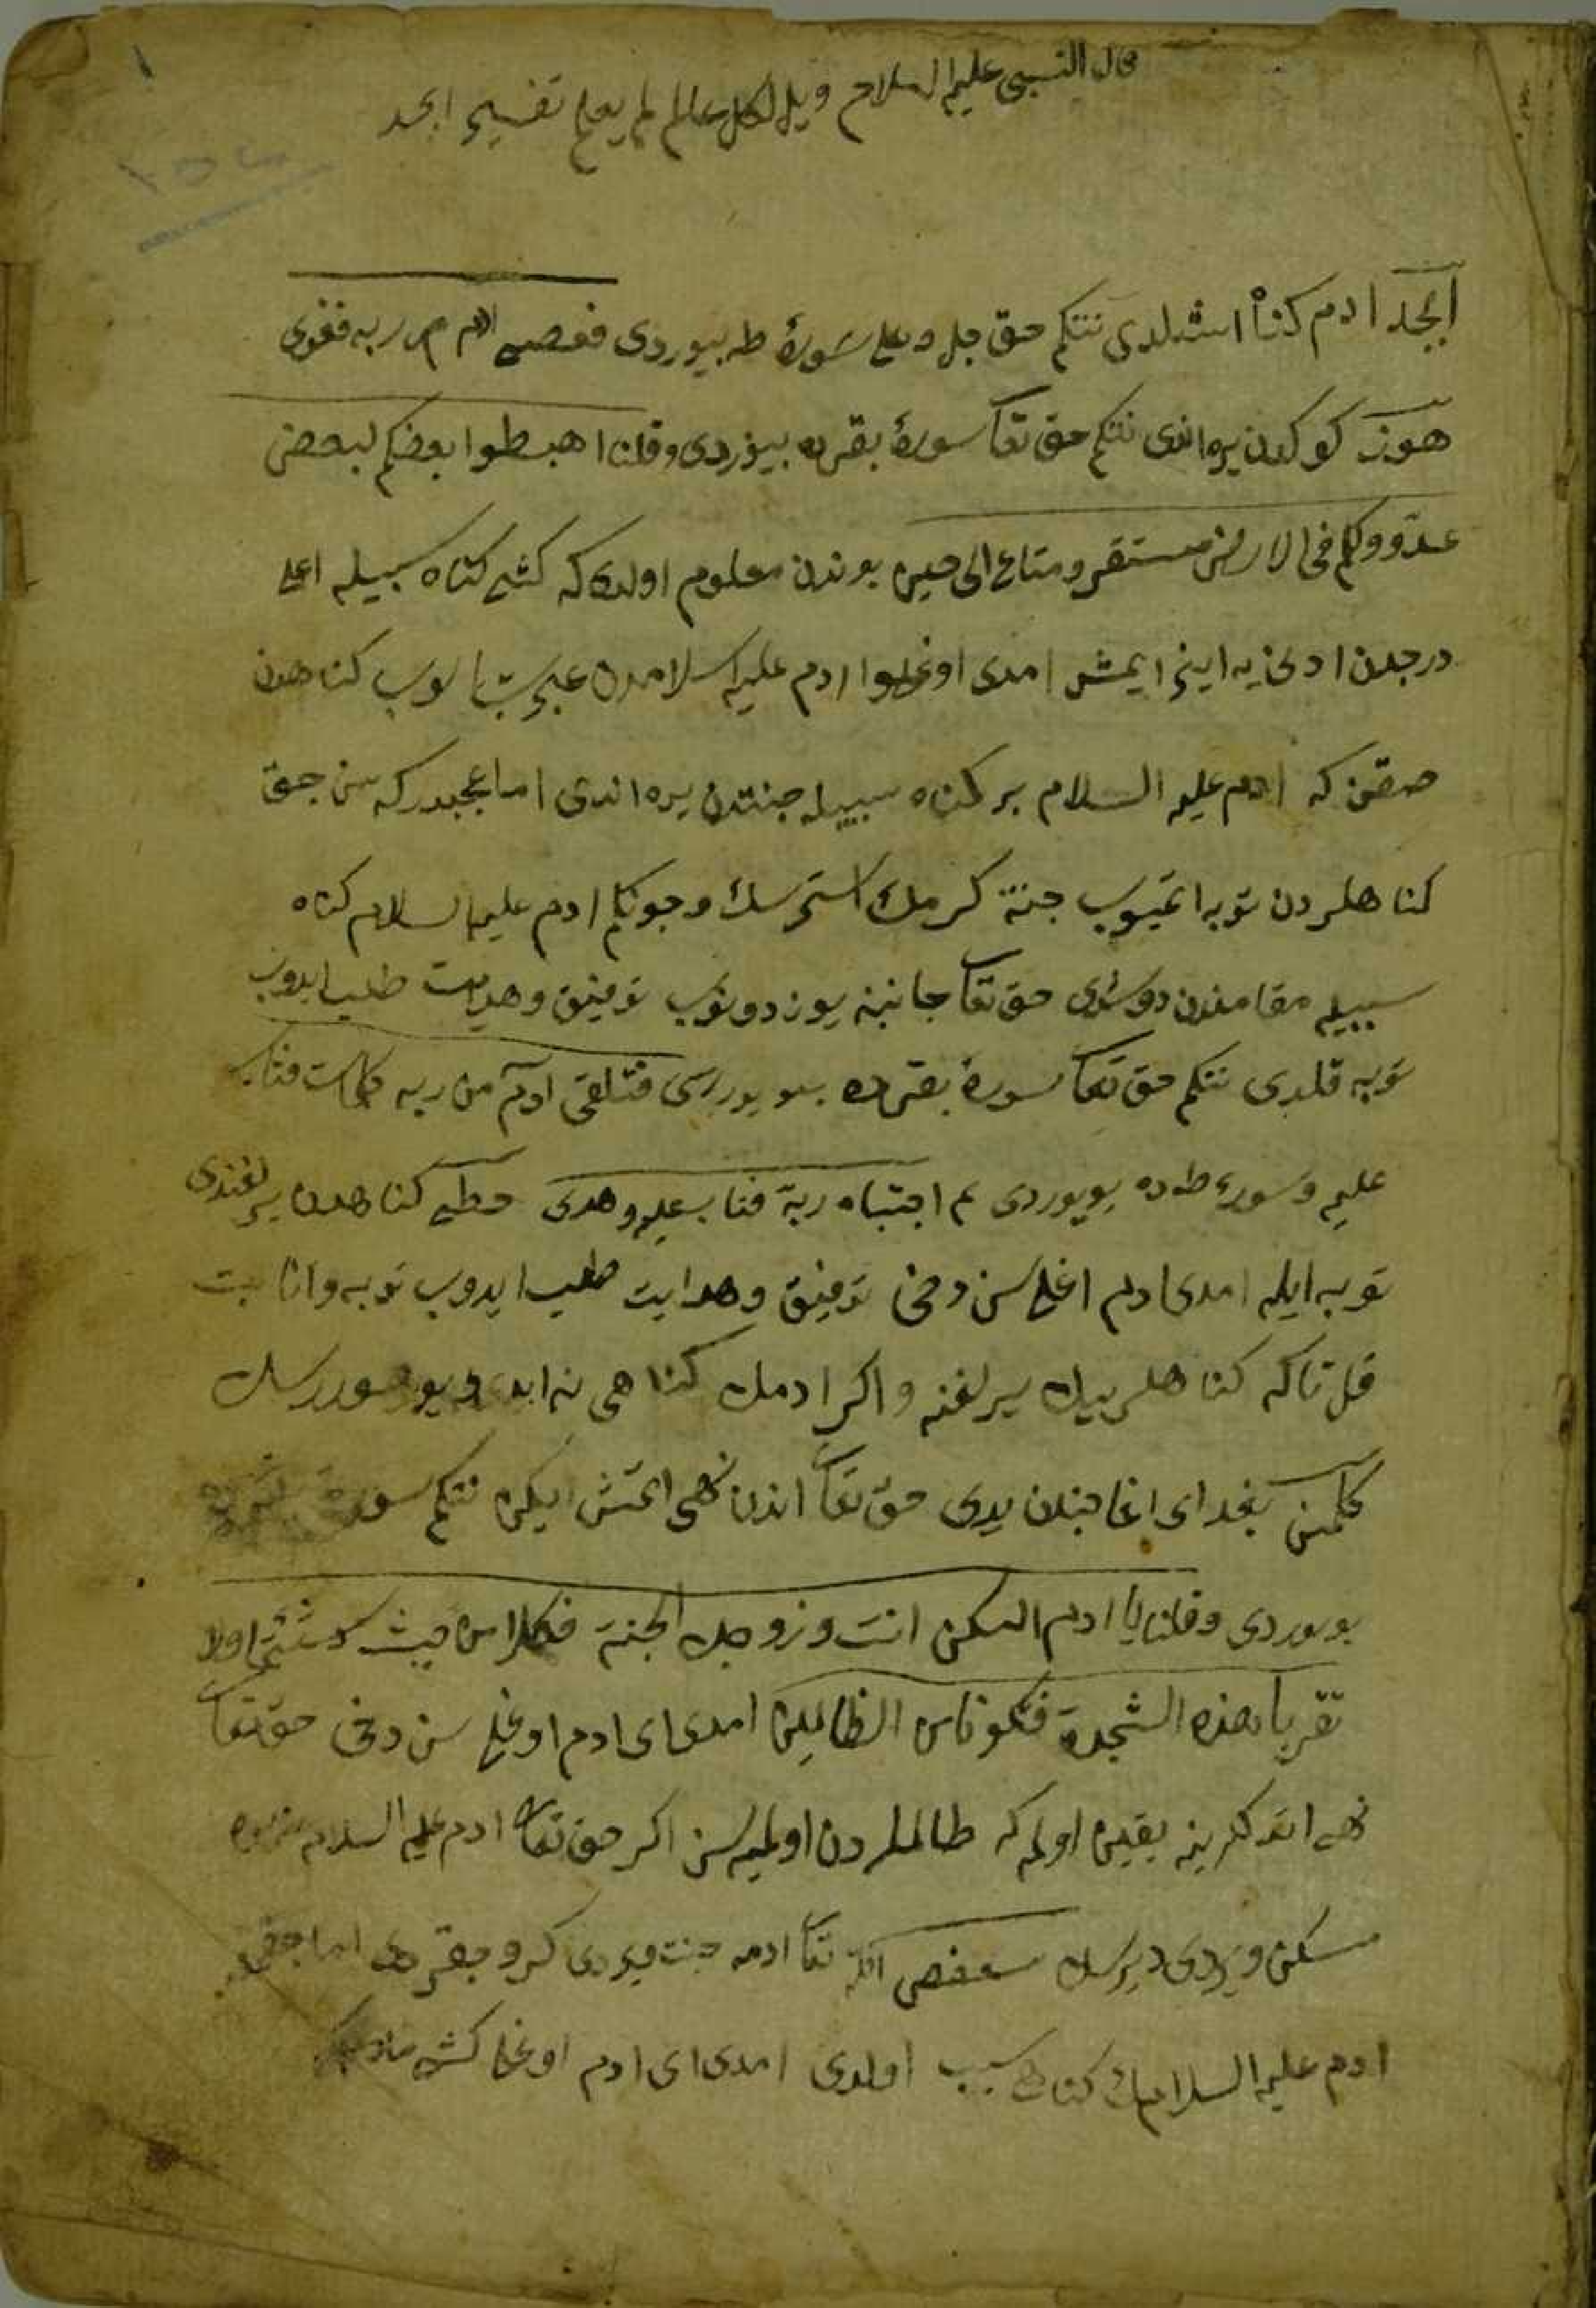 قال النبى عليه السلام ويل لكل عالم لم يعلم تفسير ابجد
ابجد ادم كناه اشلدى نتكم حق جل وعلى سورۀ طه بيوردى فعصى ادم ربه فغوى
هوز كوكدن يره اندى نتكم حق تعا سورۀ بقره ده بيوردى وقلنا اهبطوا بعضكم لبعض
عدو ولكم فى الارض مستقر ومتاع الى حين بوندن معلوم اولدى كه كشى كناه سبيله اعلى
درجدن ادنى يه اينر ايمش امدى اوغلو ادم عليه السلامدن عبرت الوب كناهدن
صقن كه ادم عليه السلام بر كناه سبيله جنتدن يره اندى اما عجبدر كه سن جق
كناهلردن توبه اتميوب جنته كرمك استرسك وچونكم ادم عليه السلام كناه
سبيله مقامندن دوشدى حق تعا جانبنه يوز دونوب توفيق وهدايت طلب ايدوب
توبه قلدى نتكم حق تعا سورۀ بقره ده بيوردى فتلقى آدم من ربه كلمات فتاب
عليه وسورۀ طه ده بويوردى ثم اجتباه ربه فتاب عليه وهدى حطى كناهدن يرلغندى
توبه ايله امدى ادم اغلى سن دخى توفيق وهدايت طلب ايدوب توبه وانابت
قل تا كه كناهلريك يرلغنه واكر ادمك كناهى نه ايدى ديو صوررسك
كلمن بغداى اغاجندن يدى حق تعا اندن نهى اتمش ايكن نتكم سورۀ بقره ده
بويوردى وقلنا يا ادم اسكن انت وزوجك الجنة فكلا من حيث شئتما ولا
تقربا هذه الشجرة فتكونا من الظالمين امدى اى ادم اوغلى سن دخى حق تعا
نهى اتدكلرينه يقين اولمه كه ظالملردن اولميه سن اكر حق تعا ادم عليه السلام
مسكن ويردى ديرسك سعفص الله تعا ادمه جنت ويردى كرو چقردى اما چقمه
ادم عليه السلامك كناهى سبب اولدى امدى اى ادم اوغلى كشى